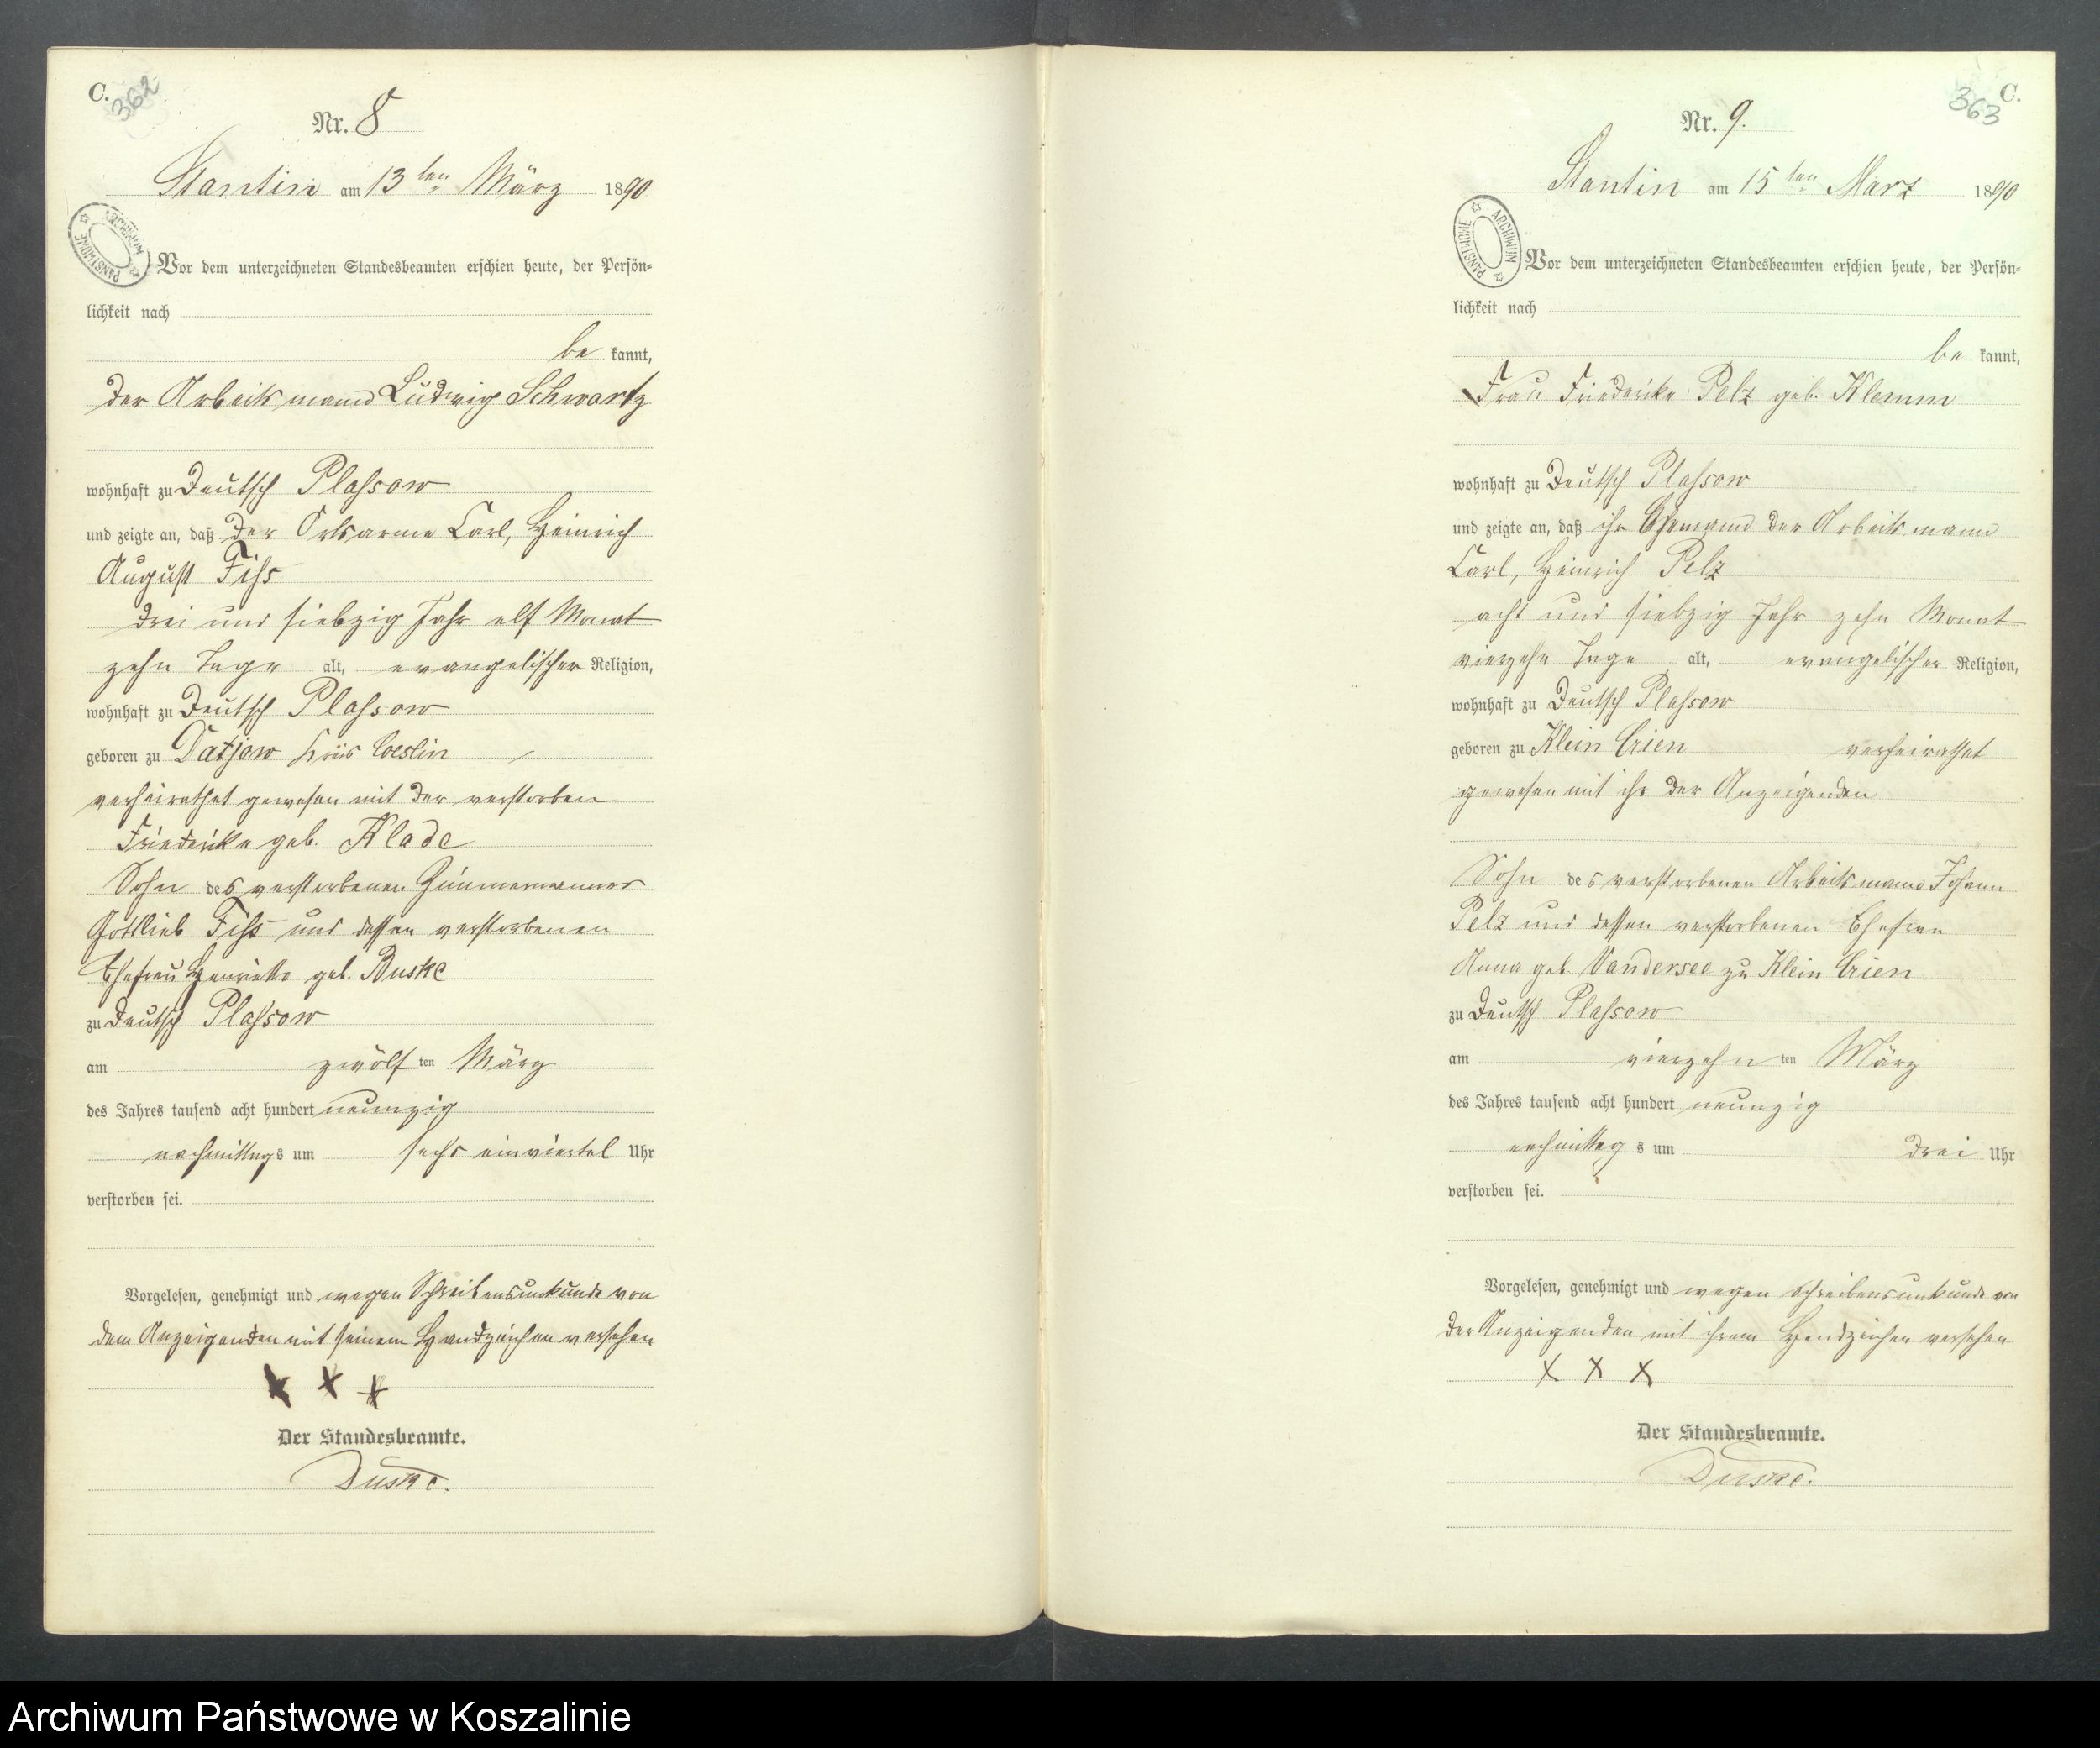 C.
362
Nr. 8
Stantin am 13ten März 1890
ARCHIWUM PAŃSTWOWE
Vor dem unterzeichneten Standesbeamten erschien heute, der Persön-
lichkeit nach
be kannt,
der Arbeitsmann Ludwig Schwartz
wohnhaft zu Deutsch Plassow
und zeigte an, daß der Ortsarme Carl, Heinrich
August Fiss
drei und siebzig Jahr elf Monat
zehn Tage alt, evangelischer Religion,
wohnhaft zu Deutsch Plassow
geboren zu Datjow Kreis Coeslin
verheirathet gewesen mit der verstorben
Friederike geb. Klade
Sohn des verstorbenen Zimmermannes
Gottlieb Fiss und dessen verstorbenen
Ehefrau Henriette geb. Buske
zu Deutsch Plassow
am zwölf ten März
des Jahres tausend acht hundert neunzig
nachmittags um sechs einviertel Uhr
verstorben sei.
Vorgelesen, genehmigt und wegen Schreibensunkunde von
dem Anzeigenden mit seinem Handzeichen versehen
x x x
Der Standesbeamte.
Duske.
C.
363
Nr. 9.
Stantin am 15ten März 1890
ARCHIWUM PAŃSTWOWE
Vor dem unterzeichneten Standesbeamten erschien heute, der Persön-
lichkeit nach
be kannt,
Frau Friederike Pelz geb. Klemm
wohnhaft zu Deutsch Plassow
und zeigte an, daß ihr Ehemann der Arbeitsmann
Carl, Heinrich Pelz
acht und siebzig Jahr zehn Monat
vierzehn Tage alt, evangelischer Religion,
wohnhaft zu Deutsch Plassow
geboren zu Klein Crien verheirathet
gewesen mit ihr der Anzeigenden
Sohn des verstorbenen Arbeitsmann Johann
Pelz und dessen verstorbenen Ehefrau
Anna geb. Vandersee zu Klein Crien
zu Deutsch Plassow
am vierzehn ten März
des Jahres tausend acht hundert neunzig
nachmittag s um drei Uhr
verstorben sei.
Vorgelesen, genehmigt und wegen Schreibensunkunde von
der Anzeigenden mit ihrem Handzeichen versehen
x x x
Der Standesbeamte.
Duske.
Archiwum Państwowe w Koszalinie